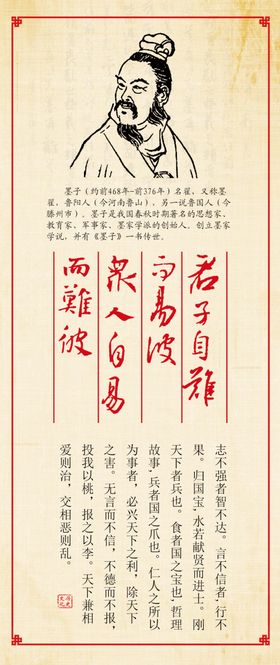 墨子（约前468年-前376年）名翟，又称墨
翟，鲁阳人（今河南鲁山），另一说鲁国人（今
滕州市）。墨子是我国春秋时期著名的思想家、
教育家、军事家、墨家学派的创始人。创立墨家
学说，并有《墨子》一书传世。
君子自难
而易彼
众人自易
而难彼
志不强者智不达。言不信者，行不
果。归国宝，水若献贤而进士。刚
天下者兵也。食者国之宝也，哲理
故事，兵者国之爪也。仁人之所以
为事者，必兴天下之利，除天下
之害。无言而不信，不德而不报，
投我以桃，报之以李。天下兼相
爱则治，交相恶则乱。